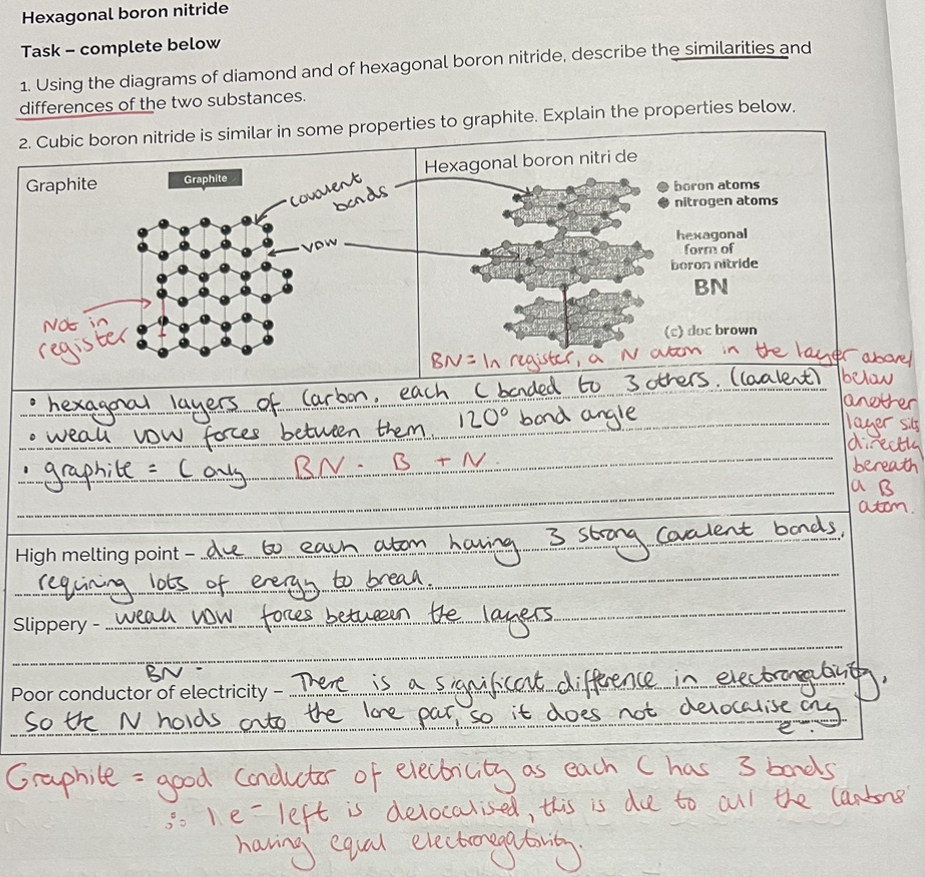 Hexagonal boron nitride
Task – complete below
1. Using the diagrams of diamond and of hexagonal boron nitride, describe the similarities and
differences of the two substances.
2. Cubic boron nitride is similar in some properties to graphite. Explain the properties below.
Graphite
Graphite
covalent
bonds
VDW
Not in
register
Hexagonal boron nitri de
boron atoms
nitrogen atoms
hexagonal
form of
boron nitride
BN
(c) doc brown
BN = In register, a N atom in the layer above/
below
another
layer sits
directly
beneath
a B
atom.
• hexagonal layers of Carbon, each C bonded to 3 others. (Covalent)
• weak VDW forces between them 120° bond angle
• graphite = C only BN - B + N
High melting point – due to each atom having 3 strong covalent bonds,
requiring lots of energy to break.
Slippery - weak VDW forces between the layers
BN -
Poor conductor of electricity – There is a significant difference in electronegativity,
So the N holds onto the lone pair, so it does not delocalise any
e⁻.
Graphite = good conductor of electricity as each C has 3 bonds
∴ 1 e⁻ left is delocalised, this is due to all the Carbons
having equal electronegativity.